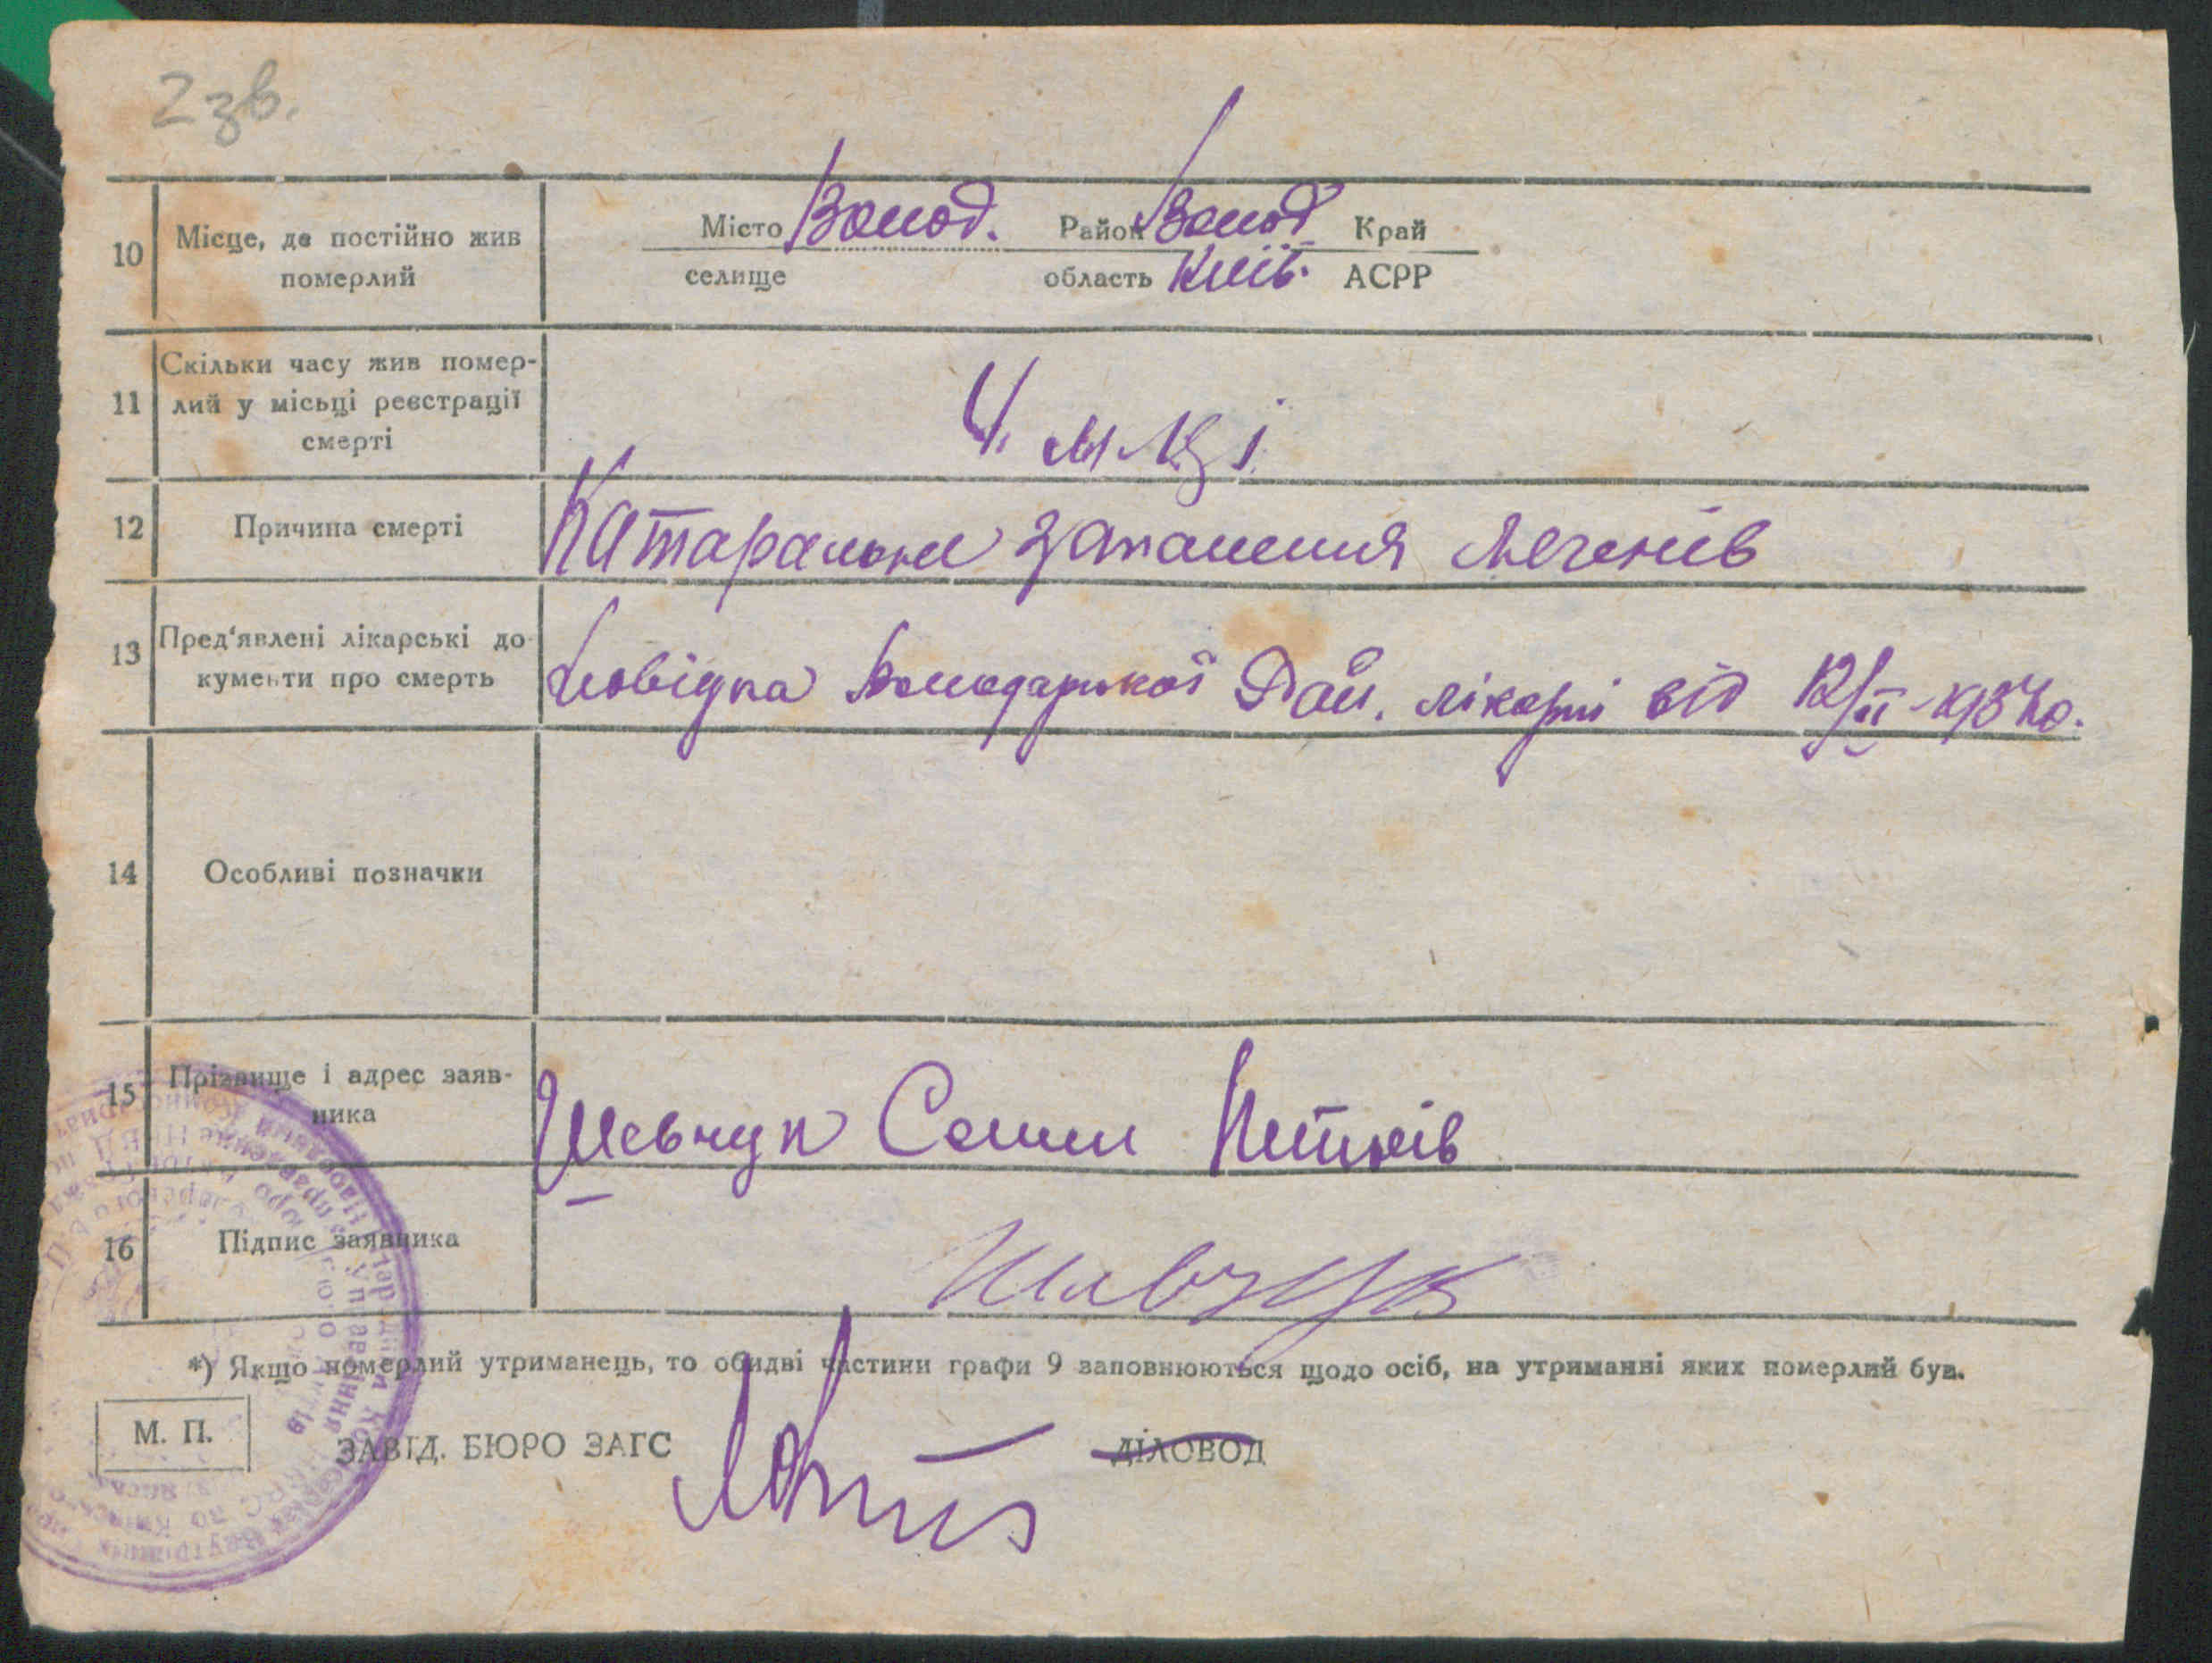 2 зв.
10 Місце, де постійно жив померлий
Місто Волод. Район Волод Край
селище область Київ. АСРР
11 Скільки часу жив помер-
лий у місьці реєстрації
смерті
4 м-ці
12 Причина смерті Катаральне запалення легенів
13 Пред'явлені лікарські до-
кументи про смерть
Довідка Володарської Рай. лікарні від 12/II-1937 р.
14 Особливі позначки
15 Прізвище і адрес заяв-
ника
Шевчук Семен
16 Підпис заявника Шевчук
*) Якщо померлий утриманець, то обидві частини графи 9 заповнюються щодо осіб, на утриманні яких померлий був.
М. П.
ЗАВІД. БЮРО ЗАГС ДІЛОВОД